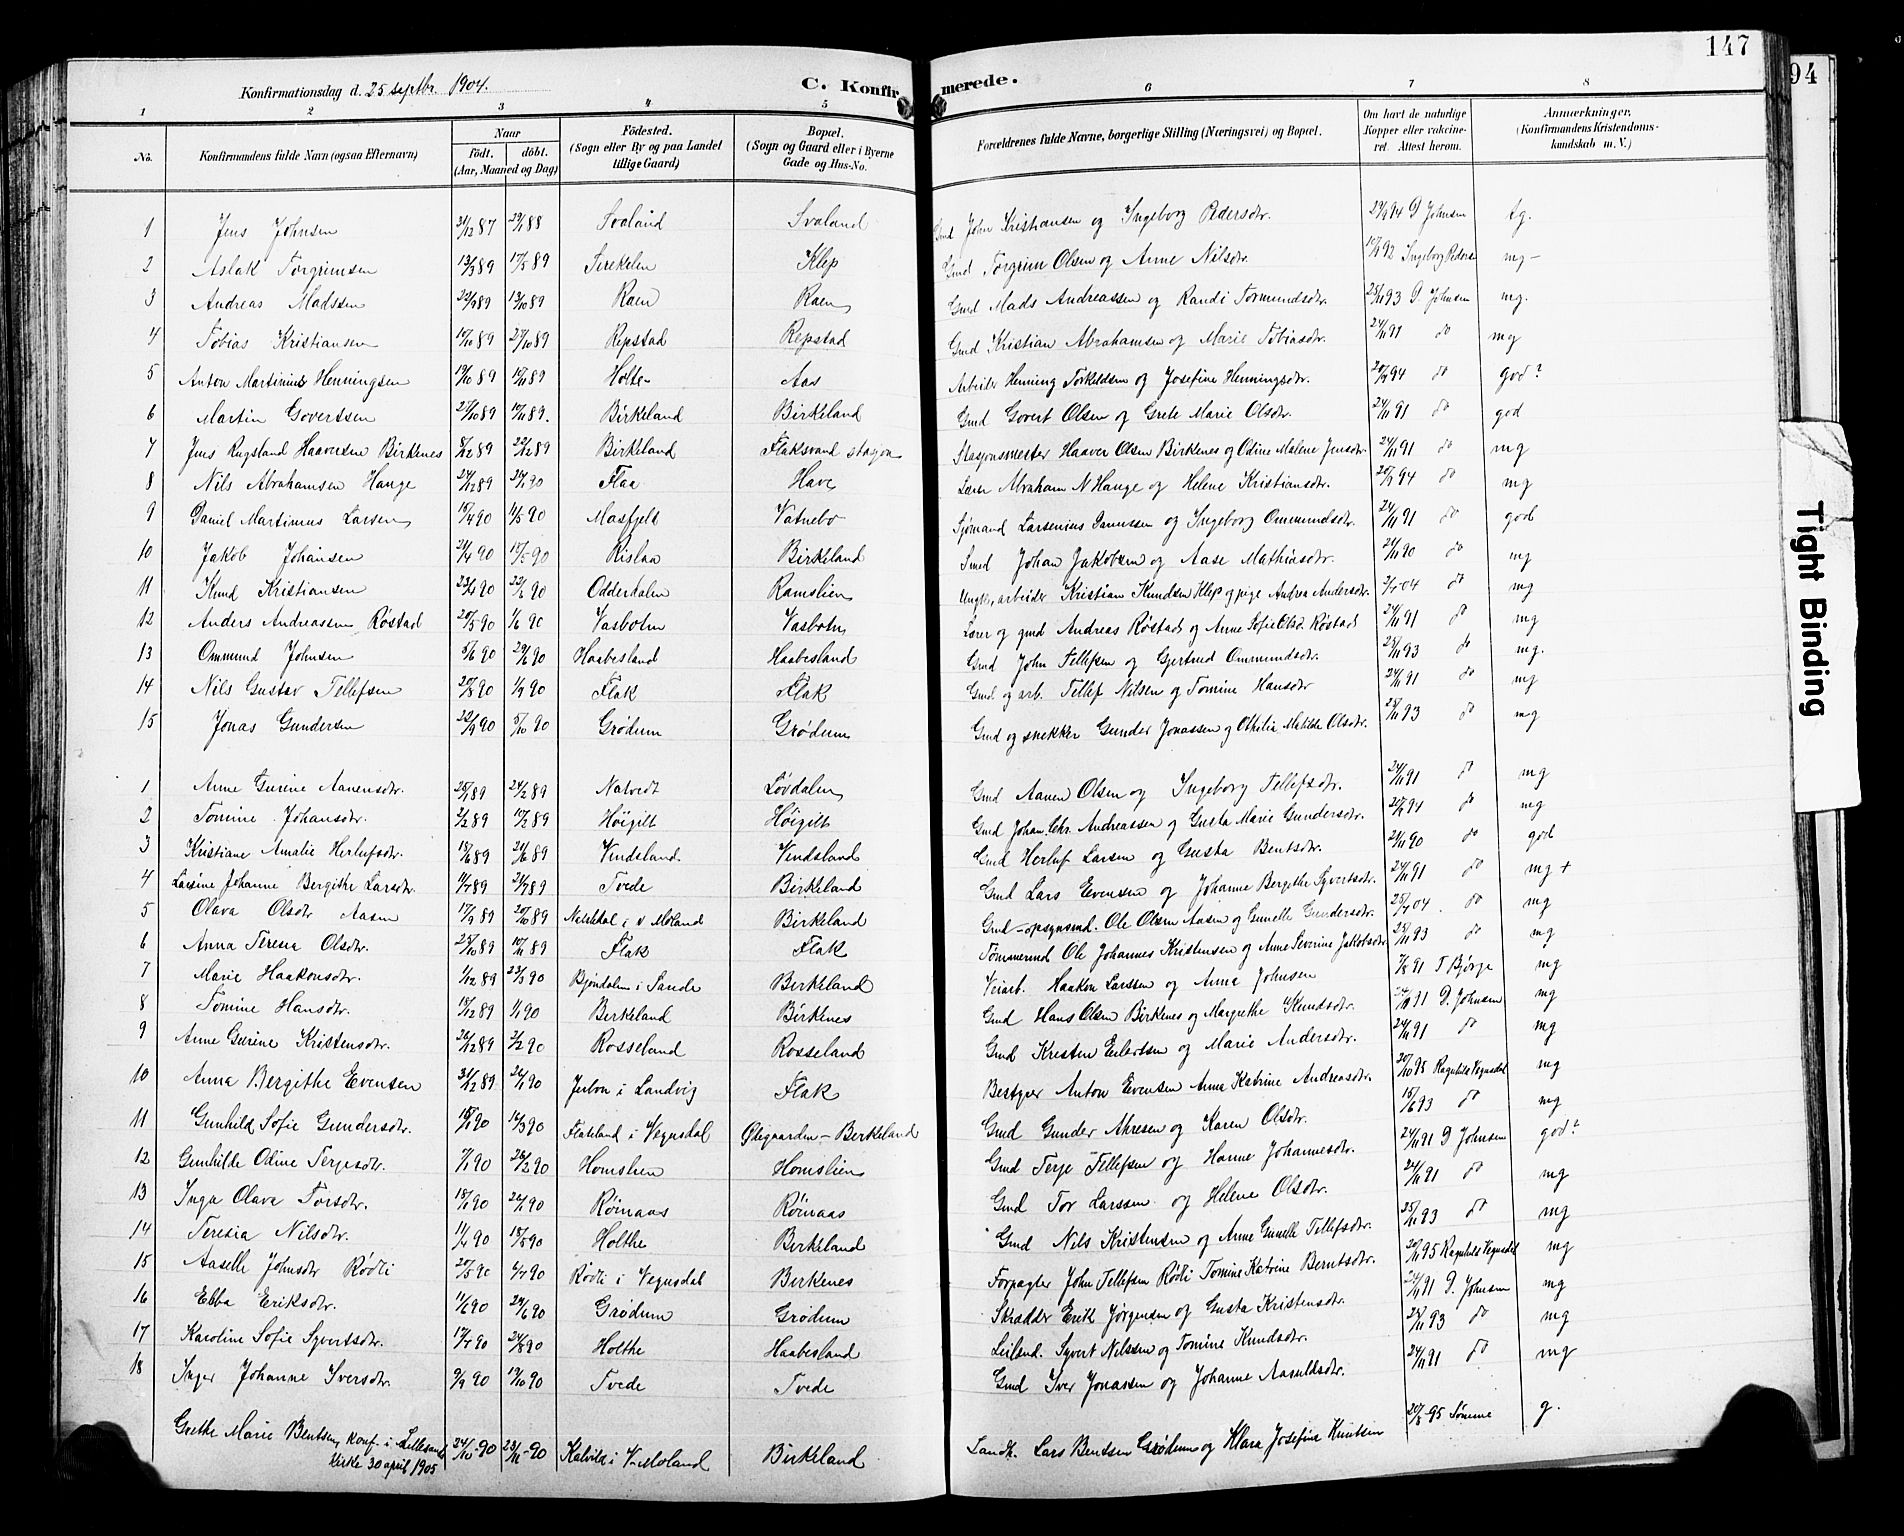 147
94
Konfirmationsdag d. 25 septbr. 1904.
C. Konfirmerede.
1 2 3 4 5 6 7 8
No. Konfirmandens fulde Navn (ogsaa Efternavn) Naar födt. döbt. (Aar, Maaned og Dag) Födested. (Sogn eller By og paa Landet tillige Gaard) Bopæl. (Sogn og Gaard eller i Byerne Gade og Hus-No. Forældrenes fulde Navne, borgerlige Stilling (Næringsvei) og Bopæl. Om havt de naturlige Kopper eller vakcineret. Attest herom. Anmærkninger. (Konfirmandens Kristendomskundskab m. V.)
1 Jens Johnsen 31/12 87 29/1 88 Svaland Svaland Gmd John Kristiansen og Ingeborg Pedersdtr. D Johnsen tg.
2 Aslak Torgrimsen 13/3 89 17/5 89 Klep Gmd Torgrim Olsen og Anne Nilsdtr. Ingeborg mg-
3 Andreas Madssen 13/10 89 Raen Raen Gmd Mads Andreassen og Randi Tormundsdtr. 25/11 93 D. Johnsen mg.
4 Tobias Kristiansen 27/10 89 Repstad Repstad Gmd Kristian Abrahamsen og Marie Tobiasdtr. 24/11 91 do mg
5 Anton Martinius Henningsen 19/10 89 Holte Aas Arbeider Henning Torkildsen og Josefine Henningsdtr. do god?
6 Martin Govertsen 27/10 89 Birkeland Birkeland Gmd Govert Olsen og Grete Marie Olsdtr. 24/11 91 do god
7 Jens Rugsland Haaversen Birkenes 8/12 89 22/12 89 Birkeland Flaksvand stasjon Stasjonsmester Haaver Olsen Birkenes og Odine Malene Jensdtr. 24/11 91 do mg
8 Nils Abrahamsen Hauge 24/12 89 Flaa Have Lærer Abraham N Hauge og Helene Kristiansdtr. do mg
9 Daniel Martinius Larsen 11/5 90 Masfjelt Vatnebo Sjømand Larsenius Danussen og Ingeborg Ommundsdtr. 24/11 91 do god
10 Jakob Johansen 21/4 90 Rislaa Birkeland Smed Johan Jakobsen og Aase Mathiasdtr. do mg
11 Knud Kristiansen 23/4 90 Oddersdalen Ramslien Ungkar, arbeider Kristian Knudsen Klep og pige Andrea Andersdtr. do mg
12 Anders Andreassen Røstad 20/5 90 1/6 90 Vasbotn Vasbotn Lærer og gmd Andreas Røstad og Anne Sofie Olsd. Røstad 24/11 91 do mg
13 Ommund Johnsen 5/6 90 29/6 90 Haabesland Haabesland Gmd John Tellefsen og Gjertrud Ommundsdtr. 25/11 93 do mg.
14 Nils Gustav Tellefsen 20/8 90 Flak Flak Gmd. og arb. Tellef Nilsen og Tomine Hansdtr 24/11 91 do mg
15 Jonas Gundersen 22/9 90 5/10 90 Grødum Grødum Gmd og snekker Gunder Jonassen og Othilia Matilde Olsdtr. 25/11 93 do mg
1 Anne Gurine Aanensdtr. 24/2 89 Natvedt Løvdalen Gmd Aanen Olsen og Ingeborg Tellefsdtr. 24/11 91 do mg
2 Tomine Johansdtr. 2/2 89 Høigilt Høigilt Gmd Johan Chr. Andreassen og Gusta Marie Gundersdtr. do mg
3 Kristiane Amalie Herlufsdtr. Vindsland Vindsland Gmd Herluf Larsen og Gusta Bentsdtr. do god
4 Larsine Johanne Bergithe Larsdtr. Tvede Birkeland Gmd Lars Evensen og Johanne Bergithe Syvertsdtr. 24/11 91 do mg +
5 Olava Olsdtr Aasen 17/9 89 20/10 89 i V Moland Birkeland Gmd - opsynsmd. Ole Olsen Aasen og Gunelle Gundersdtr. do mg
6 Anna Teresia Olsdtr. 25/10 89 Flak Flak Tømmermd Ole Johannes Kristensen og Anne Severine Jakobsdtr 25/11 93 do mg
7 Marie Haakonsdtr. 1/12 89 23/3 90 Bjøndalen i Sande Birkeland Veiarb. Haakon Larssen og Anna Johnsen T Bjørge mg
8 Tomine Hansdtr. 15/12 89 1/1 90 Berkeland Birkenes Gmd Hans Olsen Birkenes og Margrethe Knudsdtr. 24/11 91 D. Johnsen mg
9 Anne Gurine Kristensdtr. 26/12 89 2/2 90 Rosseland Rosseland Gmd Kresten Eilertsen og Marie Andersdtr. 24/11 91 do mg
10 Anna Bergithe Evensen 31/12 89 i Landvig Flak Bestyrer Anton Evensen Anna Katrine Andreasdtr. Ragnhild Vegusdal mg
11 Gunhild Sofie Gundersdtr. 16/3 90 Flateland i Vegusdal Østegaarden - Berkeland Gmd Gunder Akresen og Karen Olsdtr. 15/6 93 do mg
12 Gunhilde Odine Terjesdtr. 26/2 90 Homslien Homslien Gmd Terje Tellefsen og Hanne Johannesdtr. 24/11 91 D Johnsen god?
13 Inga Olava Torsdtr. 18/1 90 Røinaas Røinaas Gmd Tor Larssen og Helene Olsdtr. 24/11 91 do mg
14 Teresia Nilsdtr. 11/4 90 18/5 90 Holthe Birkeland Gmd Nils Kristensen og Anne Gunelle Tellefsdtr. 25/11 93 do mg
15 Aaselle Johnsdtr Rødli 20/5 90 Rødli i Vegusdal Birkenes Forpagter John Tellefsen Rødli Tomine Katrine Berntsdtr. Ragnhild Vegusdal mg
16 Ebba Eriksdtr. 11/6 90 29/6 90 Grødum Grødum Skrædder Erik Jørgensen og Gusta Kristensdtr. 24/11 91 D. Johnsen mg
17 Karoline Sofie Syvertsdtr. 17/7 90 24/8 90 Holthe Haabesland Leilænd. Syvert Nilssen og Tomine Knudsdtr. 25/11 93 do mg
18 Inger Johanne Iversdtr. 9/9 90 19/10 90 Tvede Tvede Gmd Iver Jonassen og Johanne Aasuldsdtr. 24/11 91 do mg
Grethe Marie Bentsen, konf. i Lillesands kirke 30 april 1905 24/10-90 23/11-90 Kalvild i V-Moland Birkeland Landh. Lars Bentsen Grødum og Klara Josefine Knutsen g.
Tight Binding